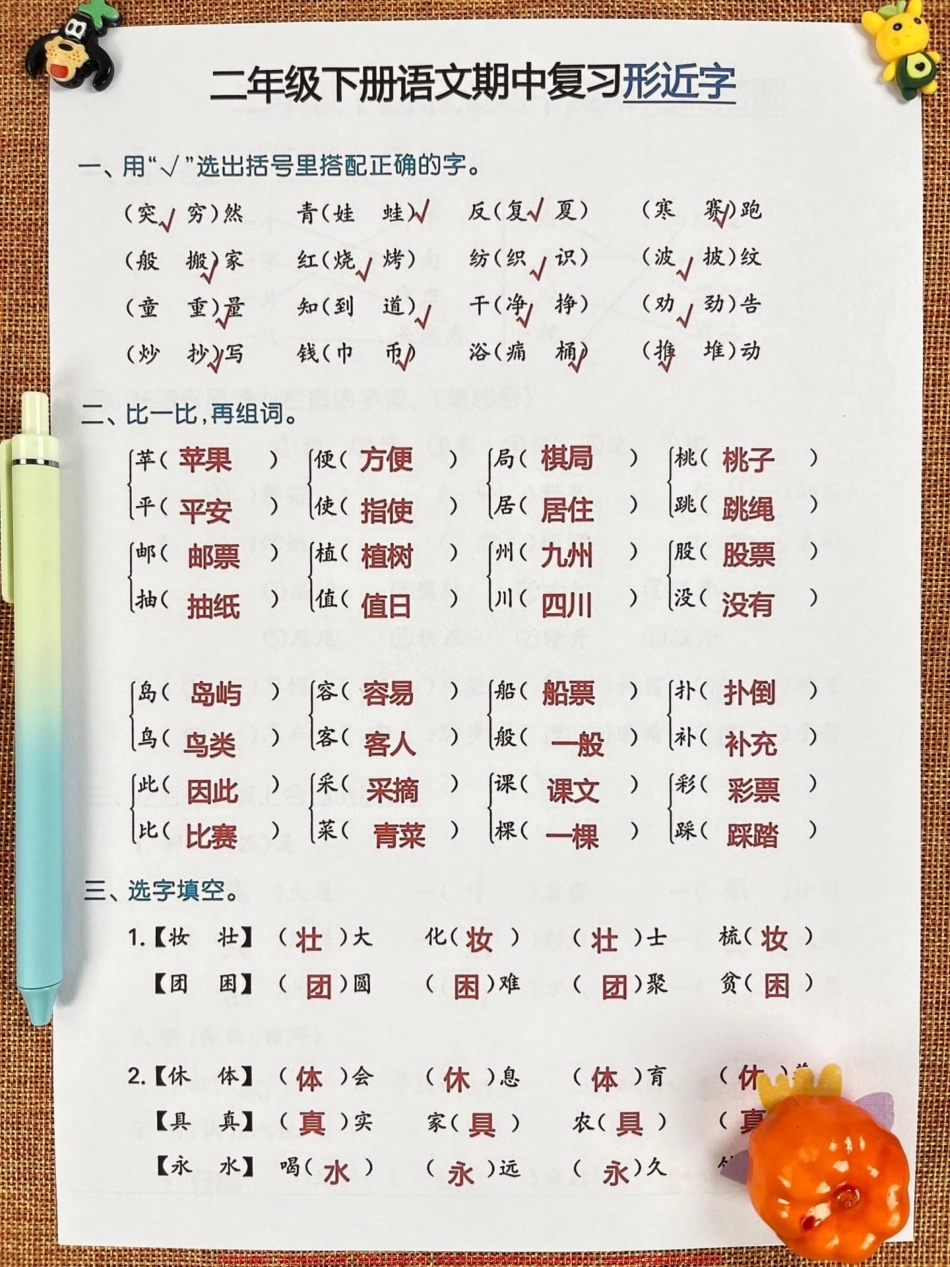 二年级下册语文期中复习形近字
一、用“√”选出括号里搭配正确的字。
(突√ 穷)然 青(娃 蛙)√ 反(复√ 夏) (寒 赛√)跑
(般 搬√)家 红(烧√ 烤) 纺(织√ 识) (波√ 披)纹
(童 重√)量 知(到 道)√ 干(净√ 挣) (劝√ 劲)告
(炒 抄√)写 钱(巾 币√) 浴(痛 桶√) (推√ 堆)动
二、比一比,再组词。
苹(苹果) 便(方便) 局(棋局) 桃(桃子)
平(平安) 使(指使) 居(居住) 跳(跳绳)
邮(邮票) 植(植树) 州(九州) 股(股票)
抽(抽纸) 值(值日) 川(四川) 没(没有)
岛(岛屿) 容(容易) 船(船票) 扑(扑倒)
鸟(鸟类) 客(客人) 般(一般) 补(补充)
此(因此) 采(采摘) 课(课文) 彩(彩票)
比(比赛) 菜(青菜) 棵(一棵) 踩(踩踏)
三、选字填空。
1.【妆 壮】 (壮)大 化(妆) (壮)士 梳(妆)
【团 困】 (团)圆 (困)难 (团)聚 贫(困)
2.【休 体】 (体)会 (休)息 (体)育 (休)
【具 真】 (真)实 家(具) 农(具) (真
【永 水】 喝(水) (永)远 (永)久